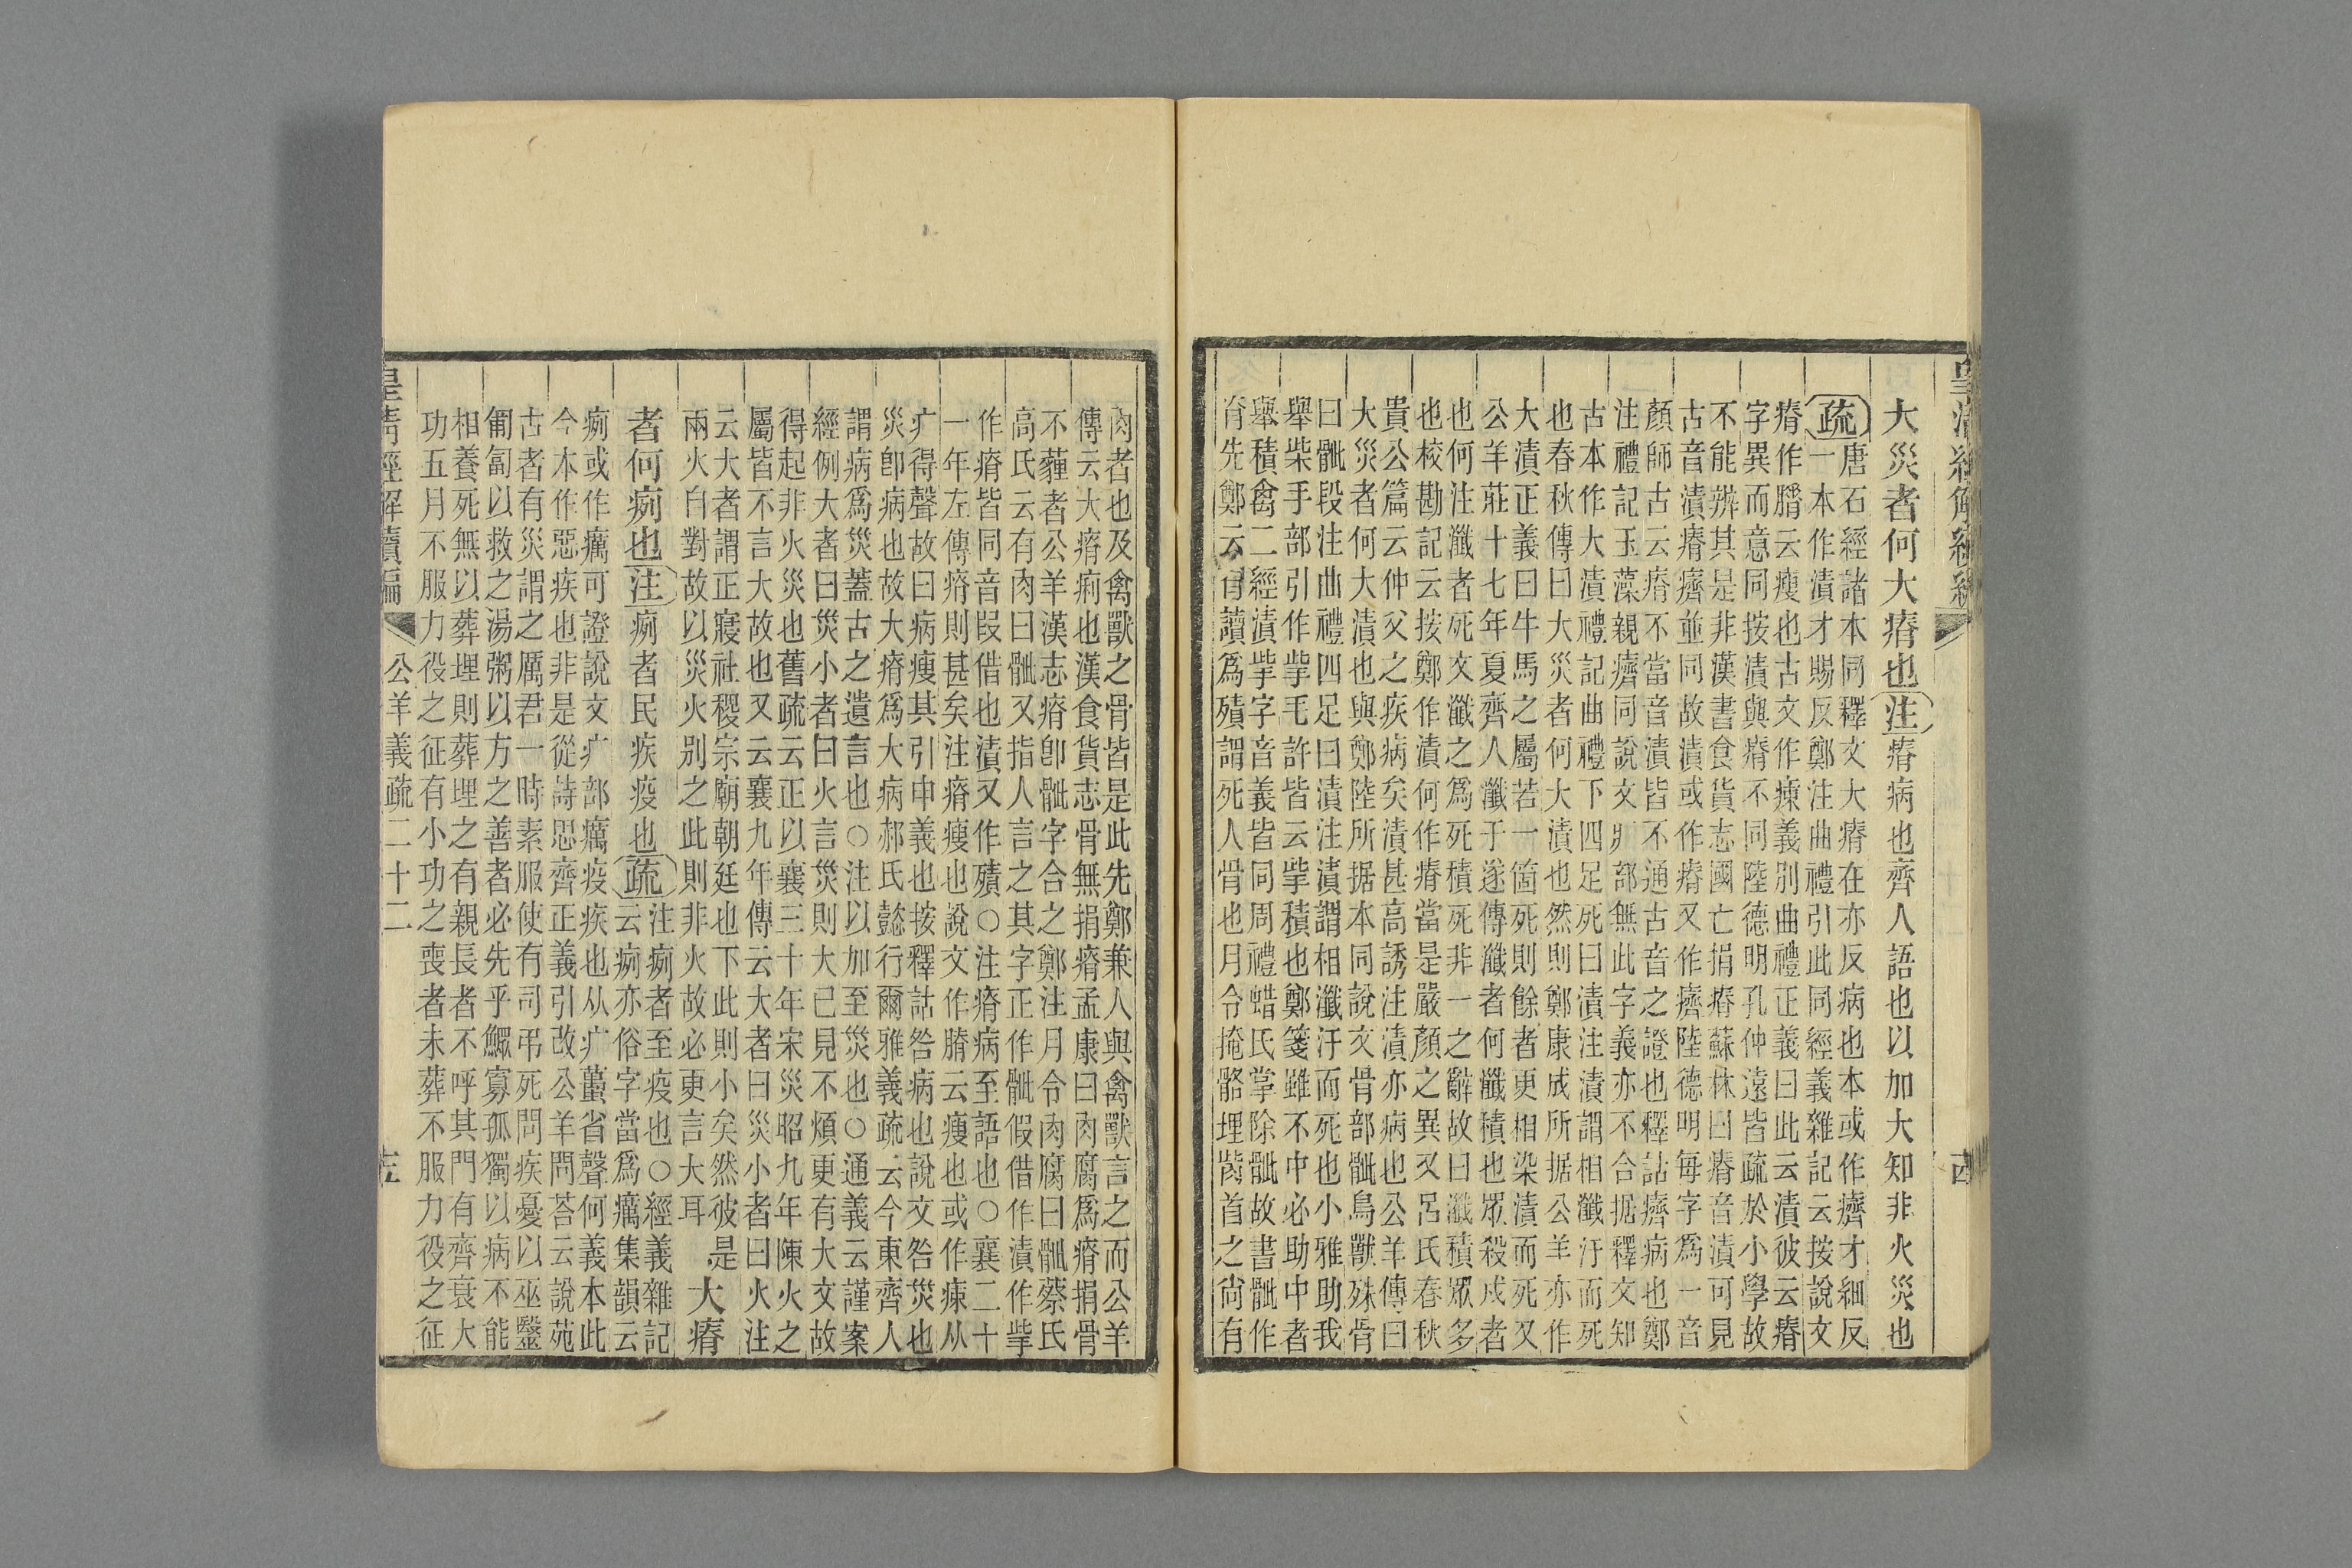 皇清經解續編
大災者何大瘠也注瘠病也齊人語也以加大知非火災也
疏唐石經諸本同釋文大瘠在亦反病也本或作㾹才細反
一本作漬才賜反鄭注曲禮引此同經義雜記云按說文
瘠作膌云瘦也古文作㾊義別曲禮正義曰此云漬彼云瘠
字異而意同按漬與瘠不同陸德明孔仲遠皆疏於小學故
不能辨其是非漢書食貨志國亡捐瘠蘇林曰瘠音漬可見
古音漬瘠㾹並同故漬或作瘠又作㾹陸德明每字爲一音
顏師古云瘠不當音漬皆不通古音之證也釋詁㾹病也鄭
注禮記玉藻親㾹同說文疒部無此字義亦不合据釋文知
古本作大漬禮記曲禮下四足死曰漬注漬謂相瀸汙而死
也春秋傳曰大災者何大漬也然則鄭康成所据公羊亦作
大漬正義曰牛馬之屬若一箇死則餘者更相染漬而死又
公羊莊十七年夏齊人瀸于遂傳瀸者何瀸積也眾殺戍者
也何注瀸者死文瀸之爲死積死非一之辭故曰瀸積眾多
也校勘記云按鄭作漬何作瘠當是嚴顏之異又呂氏春秋
貴公篇云仲父之疾病矣漬甚高誘注漬亦病也公羊傳曰
大災者何大漬也與鄭陸所据本同說文骨部骴鳥獸殊骨
曰骴段注曲禮四足曰漬注漬謂相瀸汙而死也小雅助我
舉柴手部引作㧘毛許皆云㧘積也鄭箋雖不中必助中者
舉積禽二經漬㧘字音義皆同周禮蜡氏掌除骴故書骴作
脊先鄭云脊讀爲殰謂死人骨也月令掩骼埋胔首之尚有
肉者也及禽獸之骨皆是此先鄭兼人與禽獸言之而公羊
傳云大瘠痢也漢食貨志骨無捐瘠孟康曰肉腐爲瘠捐骨
不薶者公羊漢志瘠卽骴字合之鄭注月令肉腐曰骴蔡氏
高氏云有肉曰骴又指人言之其字正作骴假借作漬作㧘
作瘠皆同音叚借也漬又作殰○注瘠病至語也○襄二十
一年左傳瘠則甚矣注瘠瘦也說文作膌云瘦也或作㾊从
疒得聲故曰病瘦其引申義也按釋詁咎病也說文咎災也
災卽病也故大瘠爲大病郝氏懿行爾雅義疏云今東齊人
謂病爲災蓋古之遺言也○注以加至災也○通義云謹案
經例大者曰災小者曰火言災則大已見不煩更有大文故
得起非火災也舊疏云正以襄三十年宋災昭九年陳火之
屬皆不言大故也又云襄九年傳云大者曰災小者曰火注
云大者謂正寢社稷宗廟朝廷也下此則小矣然彼是
兩火自對故以災火別之此則非火故必更言大耳大瘠
者何㾐也注㾐者民疾疫也疏注㾐者至疫也○經義雜記
云㾐亦俗字當爲癘集韻云
㾐或作癘可證說文疒部癘疫疾也从疒蠆省聲何義本此
今本作惡疾也非是從詩思齊正義引改公羊問荅云說苑
古者有災謂之厲君一時素服使有司弔死問疾憂以巫毉
匍匐以救之湯粥以方之善者必先乎鰥寡孤獨以病不能
相養死無以葬埋則葬埋之有親長者不呼其門有齊衰大
功五月不服力役之征有小功之喪者未葬不服力役之征
皇清經解續編 公羊義疏二十二